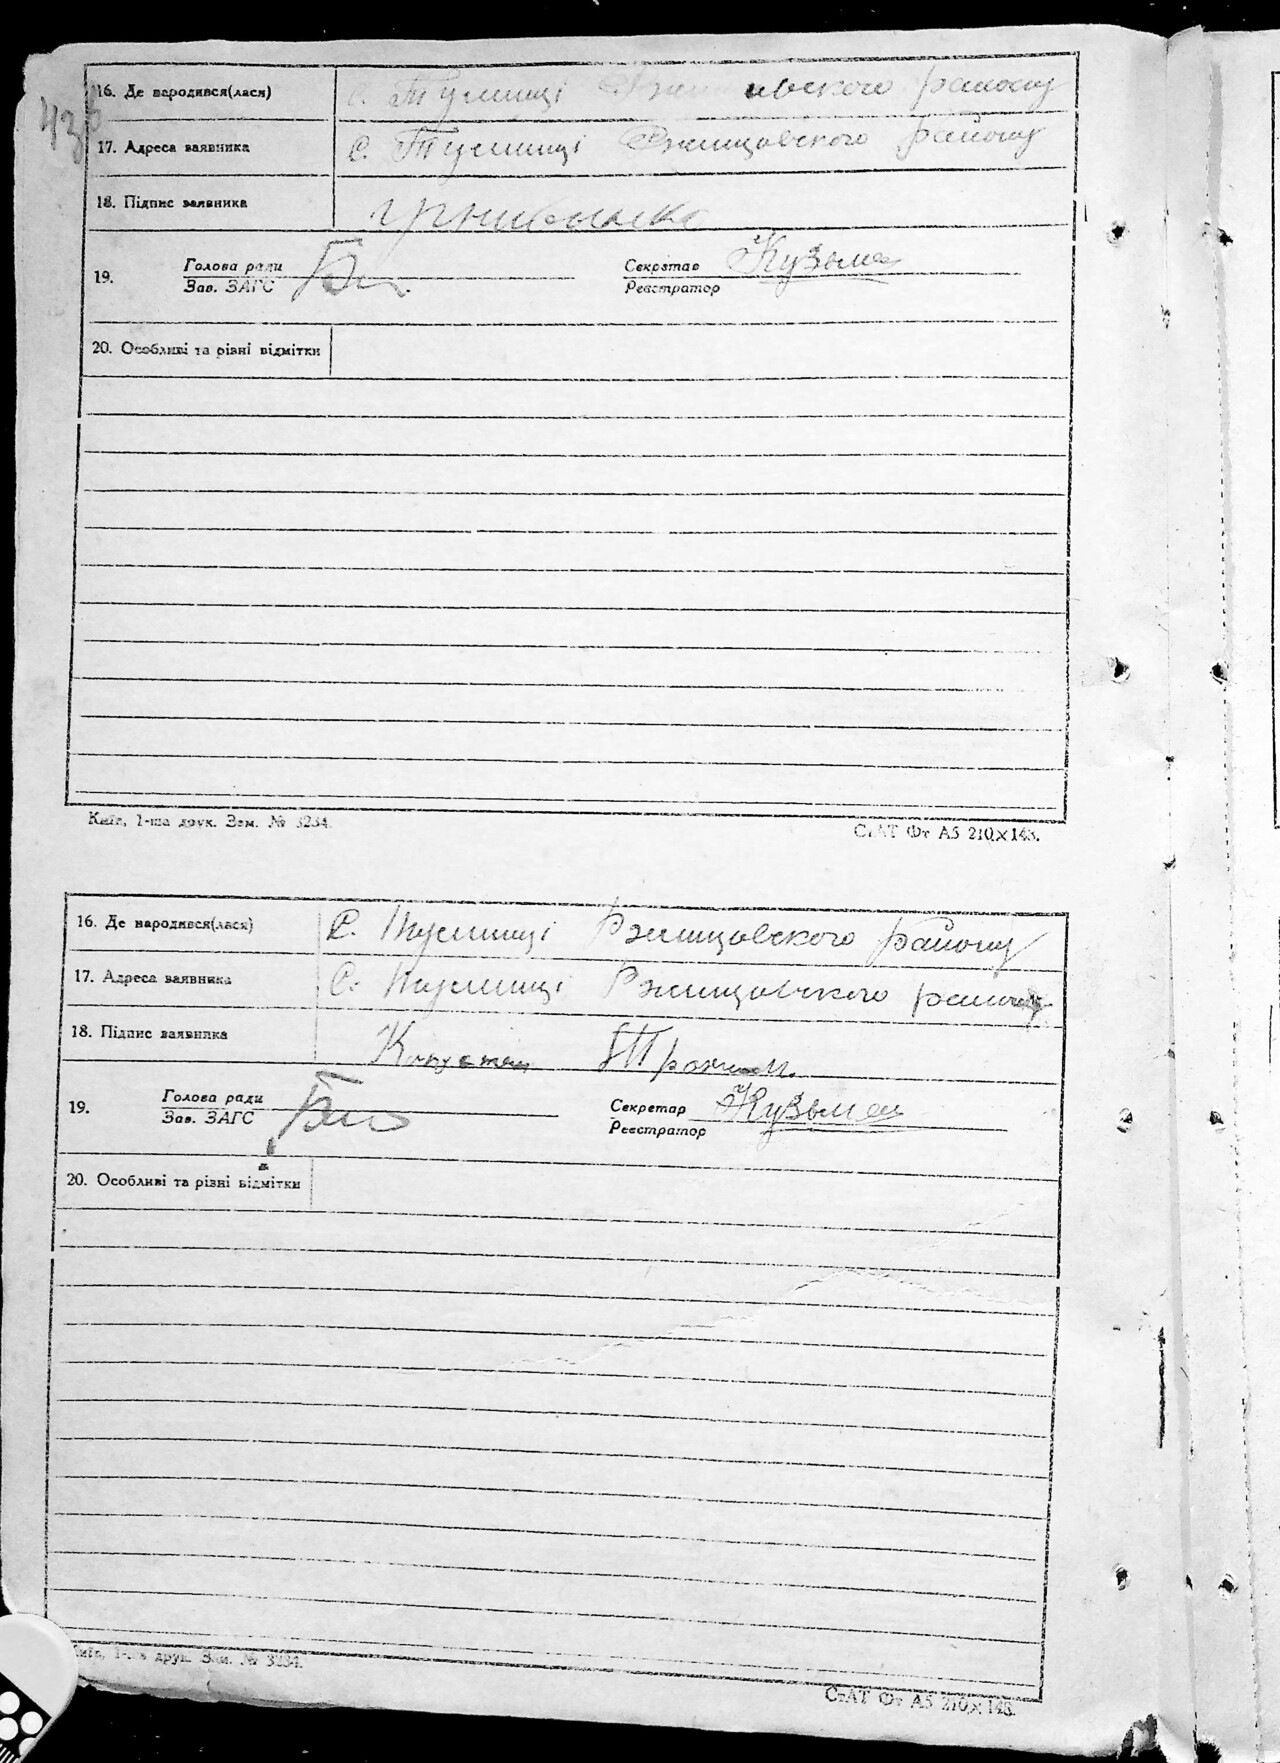 43
16. Де народився(лася) с. Тулинці Ржищовского району
17. Адреса заявника с. Тулинці Ржищовского району
18. Підпис заявника
19. Голова ради
Зав. ЗАГС
Секретар Кузьмен
Реєстратор
20. Особливі та різні відмітки
Київ, 1-ша друк. Зам. № 3234.
СтАТ Фт А5 210×148.
16. Де народився(лася) С. Тулинці Ржищовского району
17. Адреса заявника С. Тулинці Ржищовского району
18. Підпис заявника
19. Голова ради
Зав. ЗАГС
Секретар Кузьмен
Реєстратор
20. Особливі та різні відмітки
Київ, 1-ша друк. Зам. № 3234.
СтАТ Фт А5 210×148.